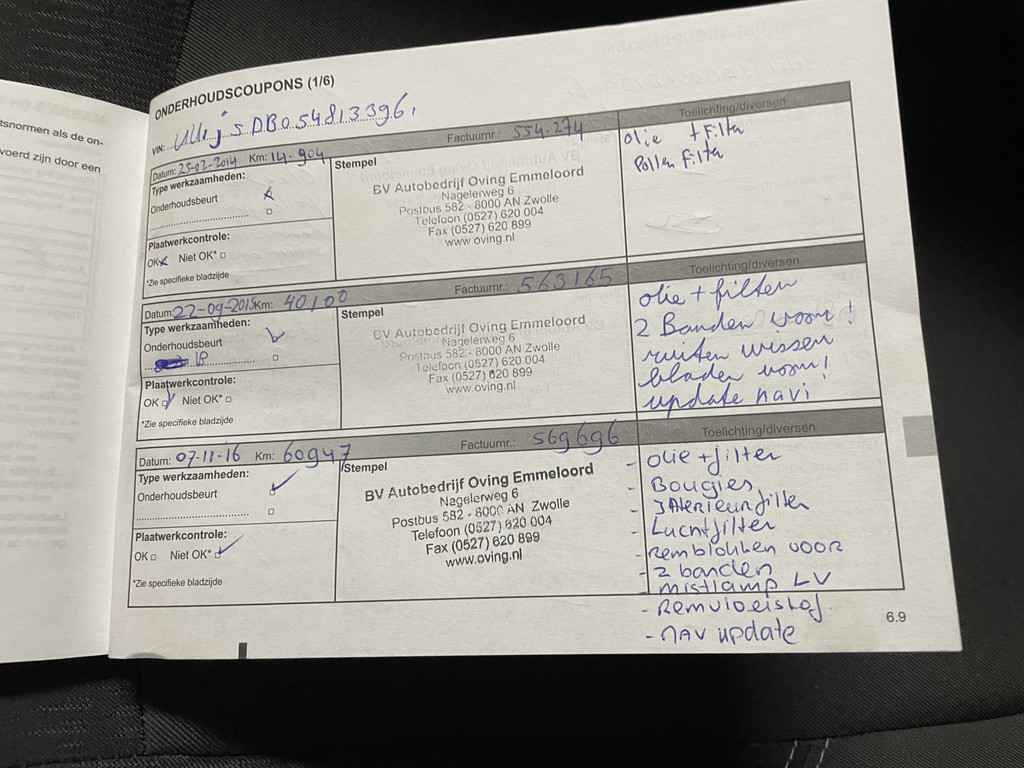 tsnormen als de on-
voerd zijn door een
ONDERHOUDSCOUPONS (1/6)
VIN:
Datum: 25-02-2014 Km: 14-904 Factuurnr.: 554-274 Toelichting/diversen
Type werkzaamheden:
Onderhoudsbeurt
Plaatwerkcontrole:
OK Niet OK*
*Zie specifieke bladzijde
Stempel
BV Autobedrijf Oving Emmeloord
Nagelerweg 6
Postbus 582 - 8000 AN Zwolle
Telefoon (0527) 620 004
Fax (0527) 620 899
www.oving.nl
olie + Filter
Pollen Filter
Datum: 22-09-2015 Km: 40100 Factuurnr.: 563165 Toelichting/diversen
Type werkzaamheden:
Onderhoudsbeurt
Plaatwerkcontrole:
OK Niet OK*
*Zie specifieke bladzijde
Stempel
BV Autobedrijf Oving Emmeloord
Nagelerweg 6
Postbus 582 - 8000 AN Zwolle
Telefoon (0527) 620 004
Fax (0527) 620 899
www.oving.nl
olie + filter
2 Banden voor!
ruiten wissen
bladen voor!
update navi
Datum: 07-11-16 Km: 60947 Factuurnr.: 569696 Toelichting/diversen
Type werkzaamheden:
Onderhoudsbeurt
Plaatwerkcontrole:
OK Niet OK*
*Zie specifieke bladzijde
Stempel
BV Autobedrijf Oving Emmeloord
Nagelerweg 6
Postbus 582 - 8000 AN Zwolle
Telefoon (0527) 620 004
Fax (0527) 620 899
www.oving.nl
- olie + filter
- Bougies
- Interieurfilter
- Luchtfilter
- Remblokken voor
- 2 banden
- mistlamp LV
- Remvloeistof
- nav update
6.9